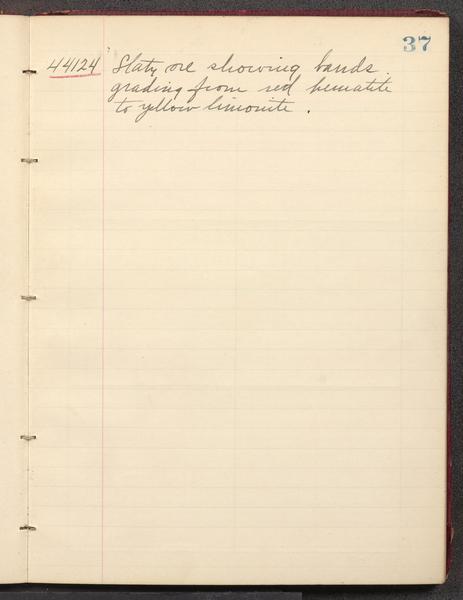 37
44124 Slaty ore showing bands
grading from red hematite
to yellow limonite.